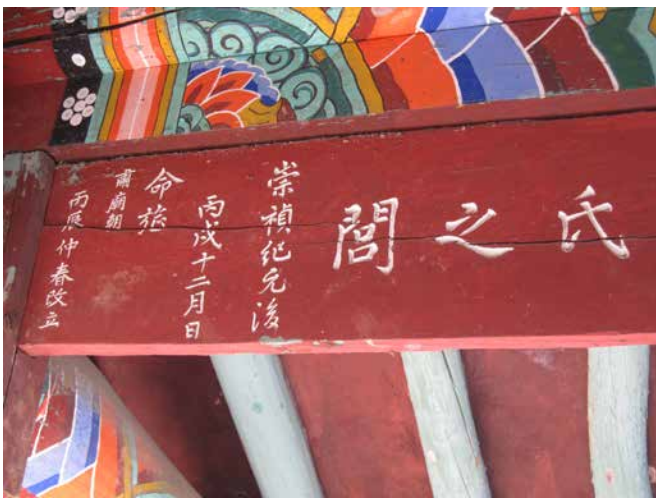 氏之閭
崇禎紀元後
丙戌十二月日
命旌
肅廟朝
丙辰仲春改立